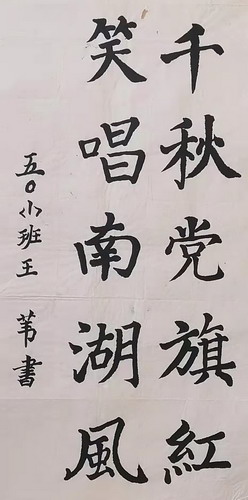 千秋党旗紅
笑唱南湖風
五〇小班王 苇書